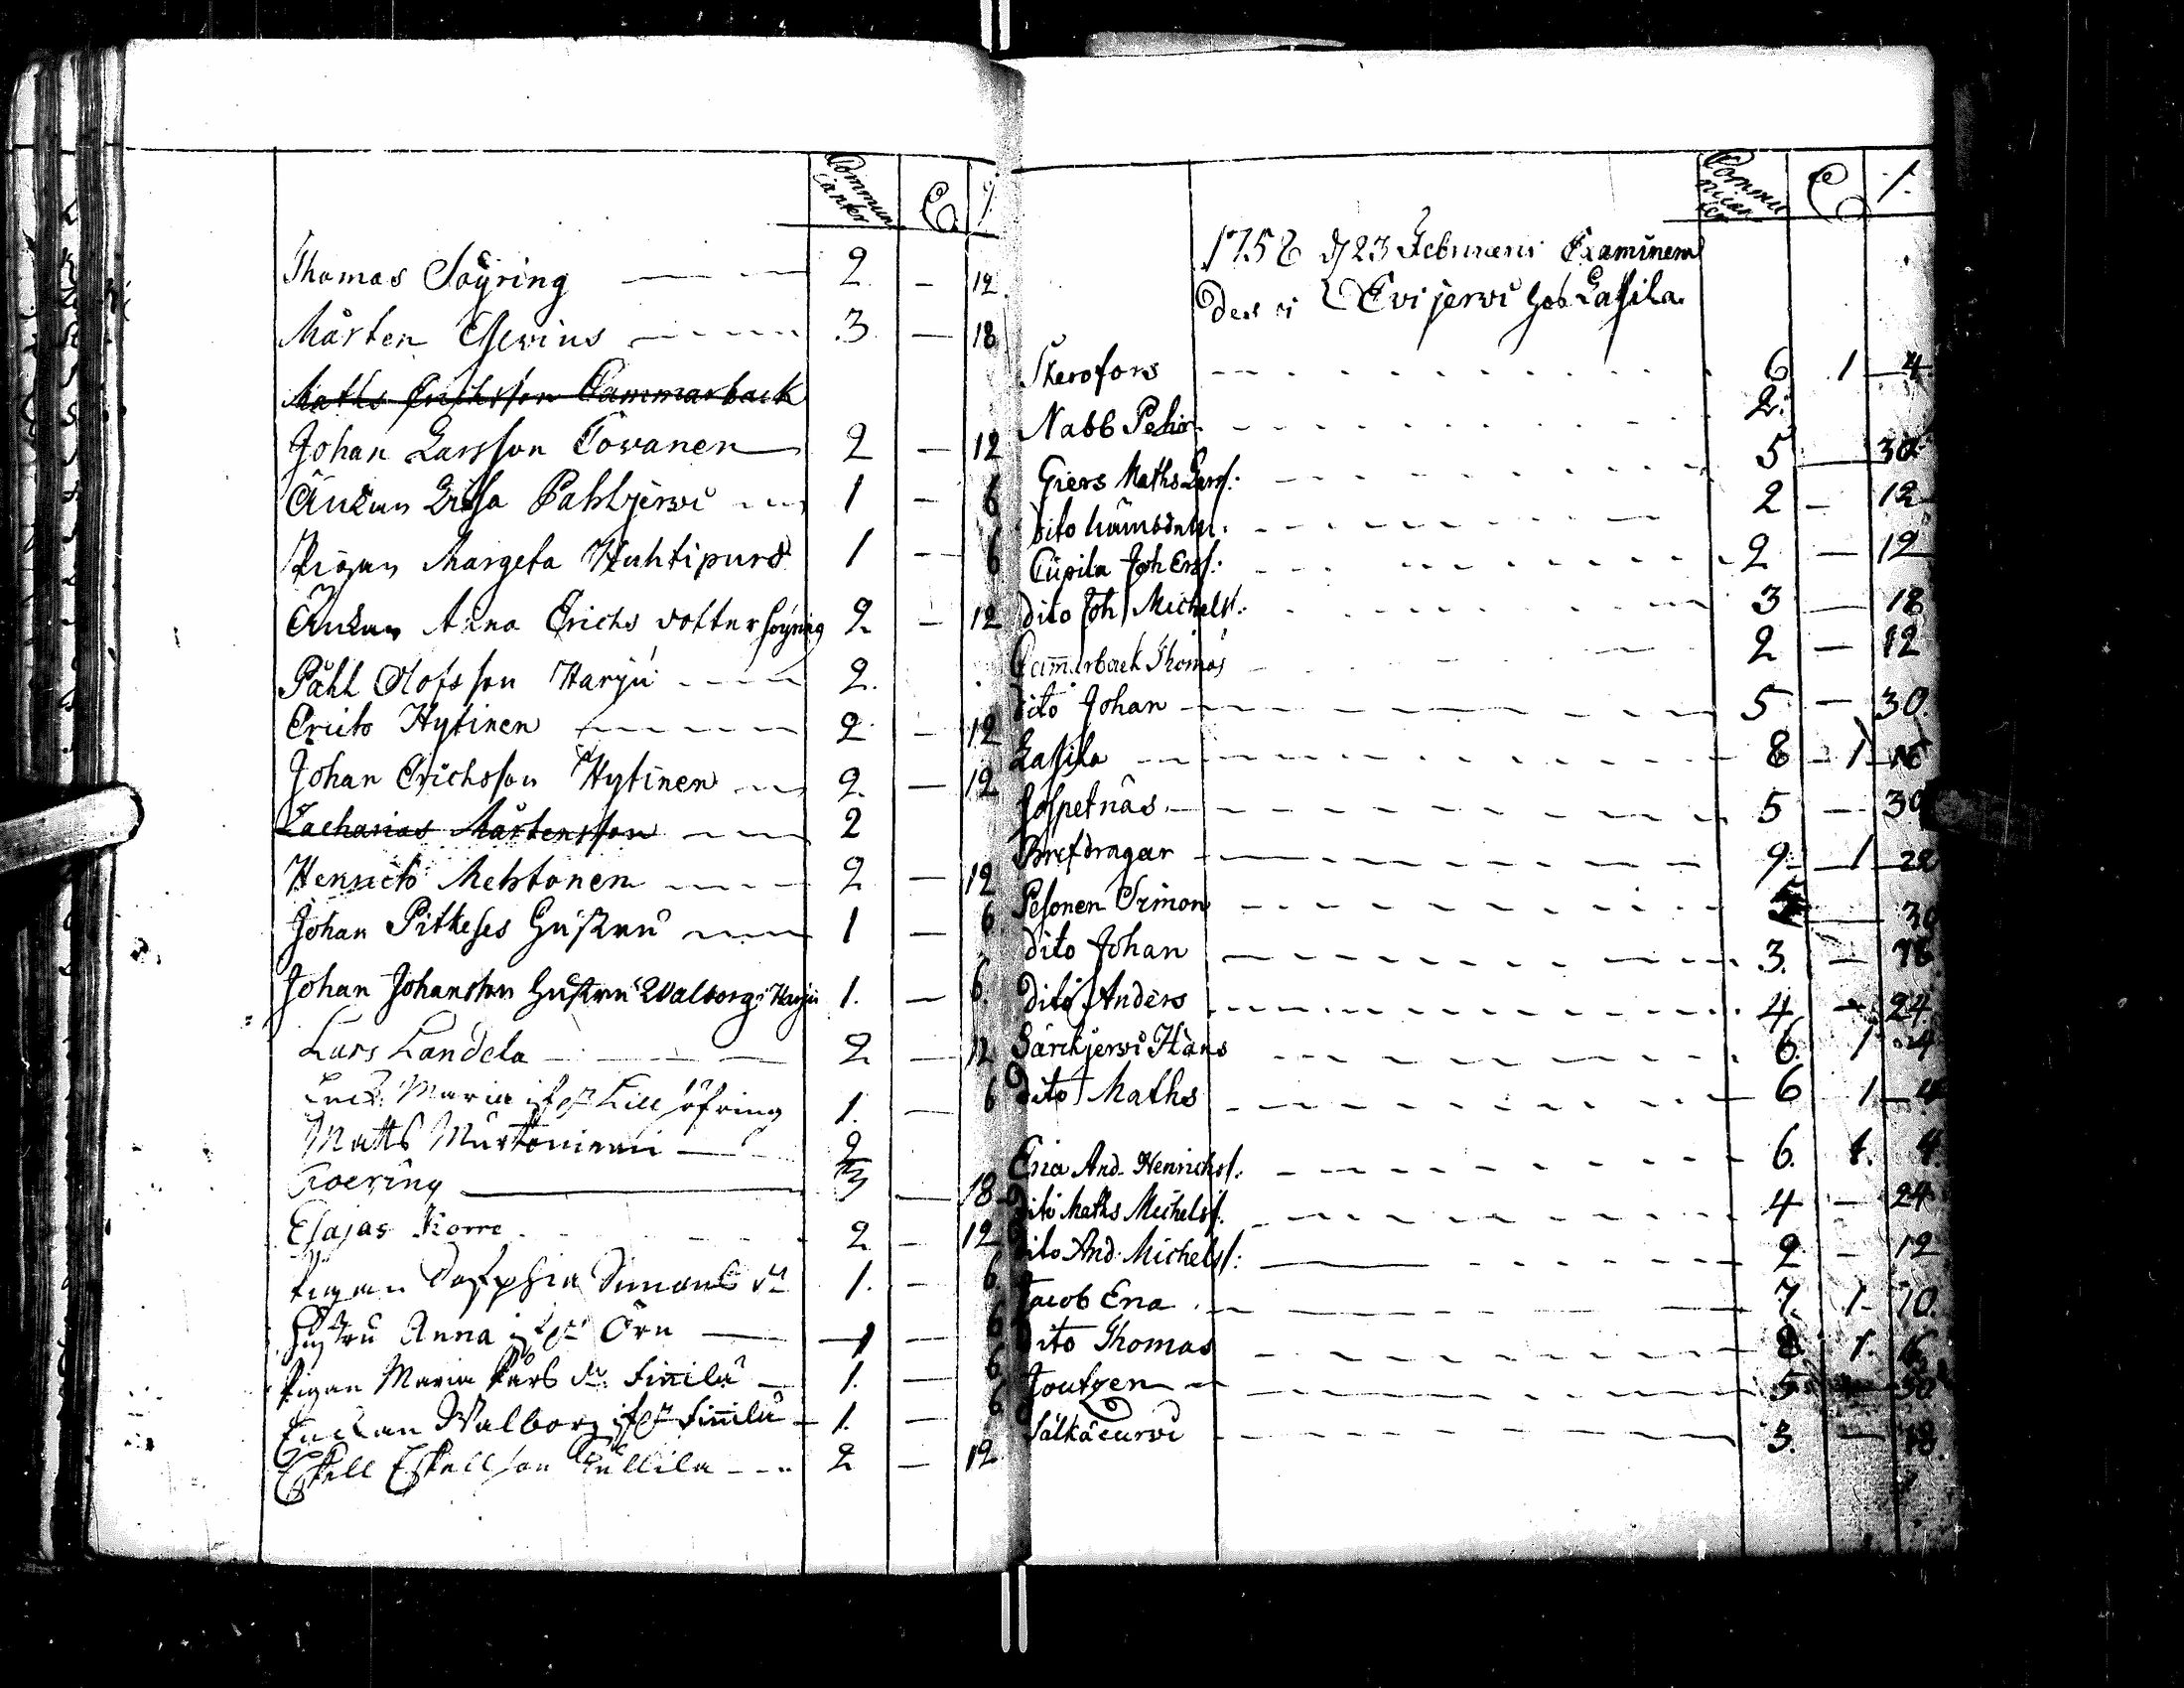 Communicanter C. %
Thomas Söyring 2 — 12.
Mårten Chevius 3 — 18
Maths Erichsson Cammarback
Johan Larsson Towanen 2 — 12
Änkan Lisa Pahljerwi 1 — 6
Pigan Margeta Huhtipurd 1 — 6
Änkan Anna Erichs dotter Söyring 2 — 12
Påhl Olofsson Harju 2.
Erich Hytinen 2 — 12
Johan Erichsson Hytinen 2. — 12
Zacharias Mårtensson 2
Henrich Mehtonen 2 — 12
Johan Pitkeses Hustru 1 — 6.
Johan Johansson Hustru Walborg Harju 1. — 6.
Lars Landela 2 — 12
Maria 1. — 6
Matts 2
Roering 3 — 18
Esajas Korre 2 — 12
Pigan Simons dr 1. — 6
Hustru Anna Örn 1 — 6
Pigan Maria Pårs dr. Finnilä 1. — 6
Enckan Walborg Finnilä 1. — 6
Eskell Eskellson Kullila 2 — 12
Communicanter C %
1758 d 23 Februarii Examinerades i Evijerwi hos Lassila
Kerofors 6 1 4
Nabb Pehr 2.
Giers Maths Larss. 5 — 30
Dito 2 — 12
Joh Erss. 2 — 12
Dito Joh Michelss. 3 — 18
Cammarback Thomas 2 — 12
Dito Johan 5 — 30.
Lassila 8 1 16
5 — 30
Brefdragar 9 1 22
Pesonen Simon 5 — 30
Dito Johan 3. — 18
Dito Anders 4 — 24
Särckjerwi Hans 6. 1 4
Dito Maths 6 1 4
Ena And. Henrichss. 6. 1. 4.
Dito Maths Michelss. 4 — 24
Dito And. Michelss. 2 — 12
Jacob Ena 7. 1. 10.
Dito Thomas 8 1. 16
Joutzen 5 — 30
3. — 18